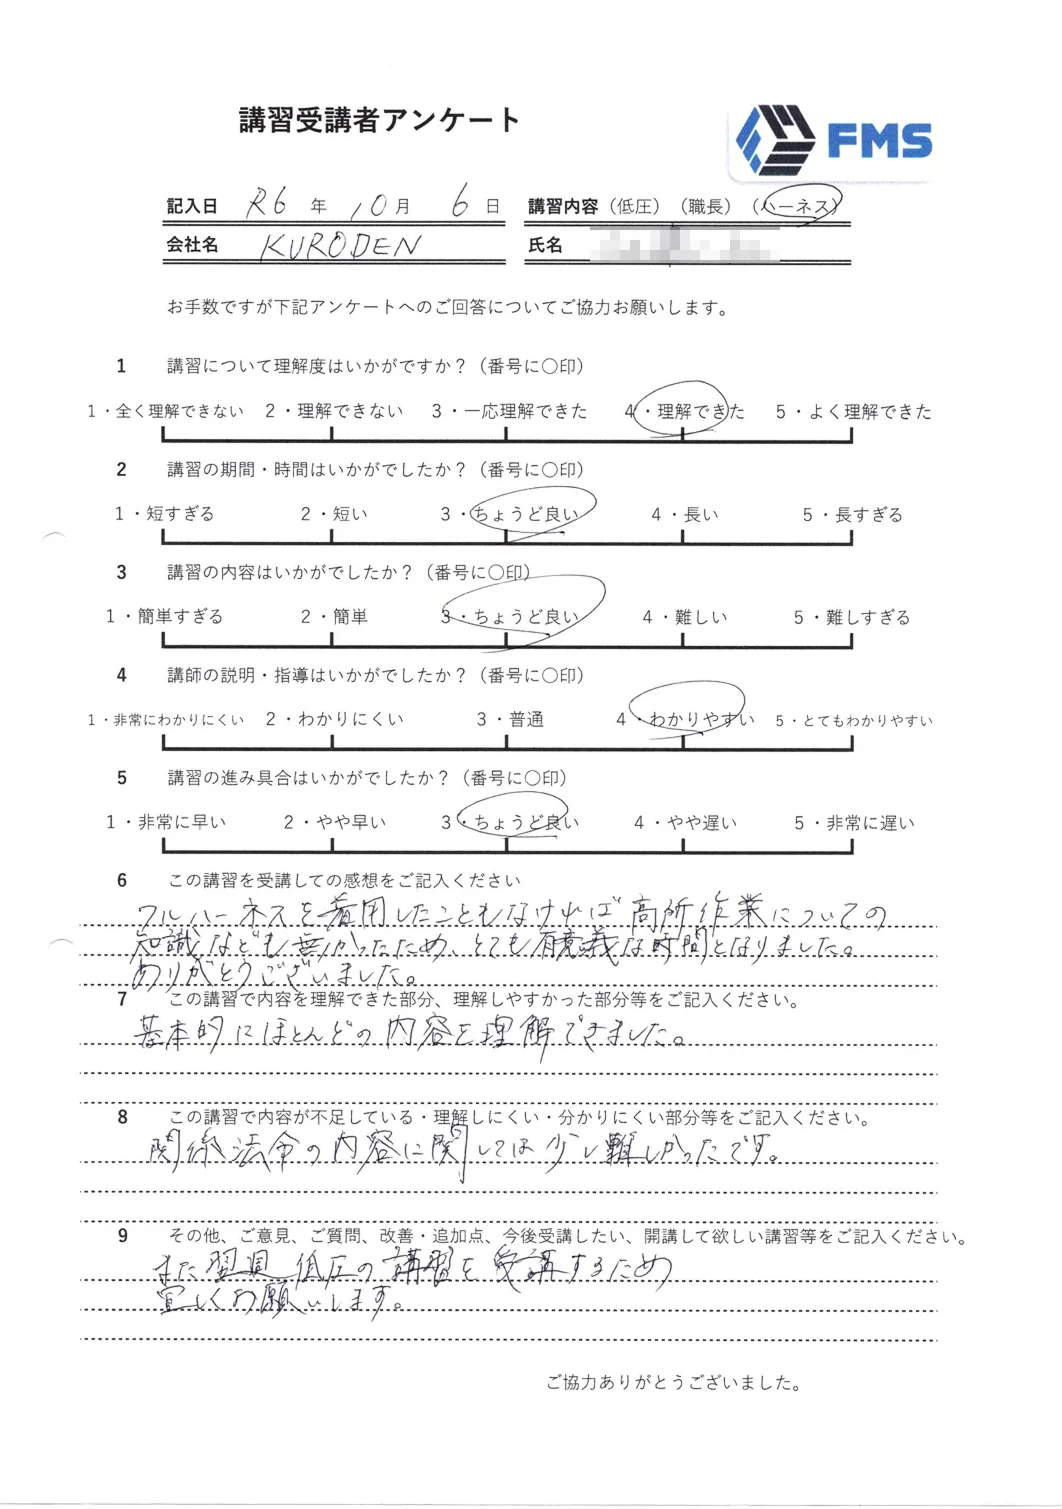 講習受講者アンケート
FMS
記入日 R6 年 10 月 6 日 講習内容(低圧)(職長)(ハーネス)
会社名 KURODEN 氏名
お手数ですが下記アンケートへのご回答についてご協力お願いします。
1 講習について理解度はいかがですか?(番号に○印)
1・全く理解できない 2・理解できない 3・一応理解できた 4・理解できた 5・よく理解できた
2 講習の期間・時間はいかがでしたか?(番号に○印)
1・短すぎる 2・短い 3・ちょうど良い 4・長い 5・長すぎる
3 講習の内容はいかがでしたか?(番号に○印)
1・簡単すぎる 2・簡単 3・ちょうど良い 4・難しい 5・難しすぎる
4 講師の説明・指導はいかがでしたか?(番号に○印)
1・非常にわかりにくい 2・わかりにくい 3・普通 4・わかりやすい 5・とてもわかりやすい
5 講習の進み具合はいかがでしたか?(番号に○印)
1・非常に早い 2・やや早い 3・ちょうど良い 4・やや遅い 5・非常に遅い
6 この講習を受講しての感想をご記入ください
フルハーネスを着用したこともなければ高所作業についての
知識なども無かったため、とても有意義な時間となりました。
ありがとうございました。
7 この講習で内容を理解できた部分、理解しやすかった部分等をご記入ください。
基本的にほとんどの内容を理解できました。
8 この講習で内容が不足している・理解しにくい・分かりにくい部分等をご記入ください。
関係法令の内容に関しては少し難しかったです。
9 その他、ご意見、ご質問、改善・追加点、今後受講したい、開講して欲しい講習等をご記入ください。
また翌週低圧の講習を受講するため
宜しくお願いします。
ご協力ありがとうございました。